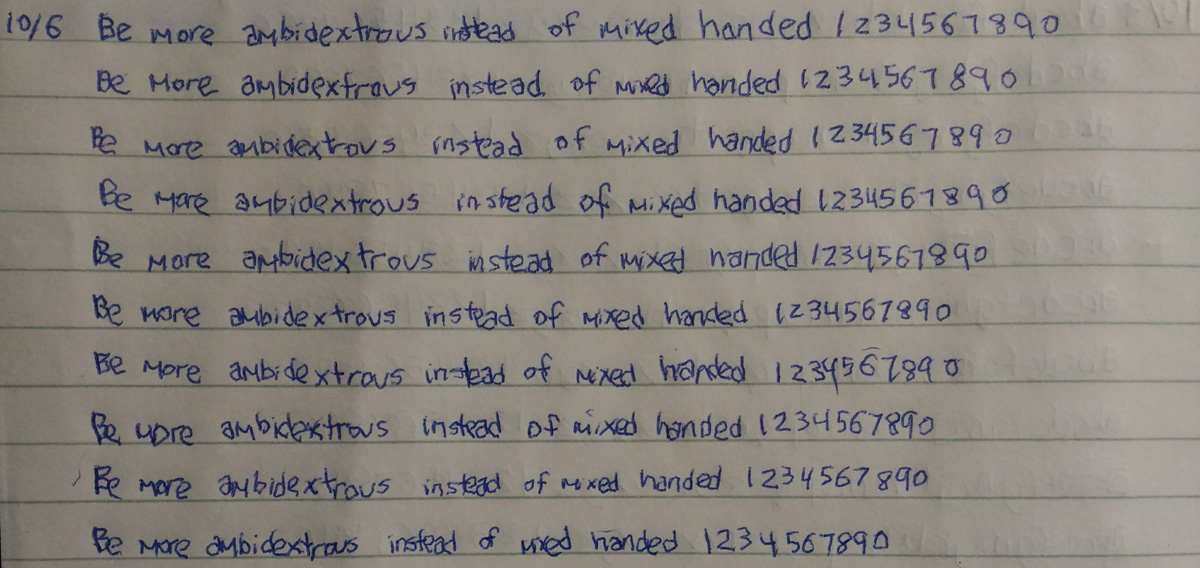 10/6 Be more ambidextrous instead of mixed handed 1234567890
Be more ambidextrous instead of mixed handed 1234567890
Be more ambidextrous instead of mixed handed 1234567890
Be more ambidextrous instead of mixed handed 1234567890
Be more ambidextrous instead of mixed handed 1234567890
Be more ambidextrous instead of mixed handed 1234567890
Be more ambidextrous instead of mixed handed 1234567890
Be more ambidextrous instead of mixed handed 1234567890
Be more ambidextrous instead of mixed handed 1234567890
Be more ambidextrous instead of mixed handed 1234567890